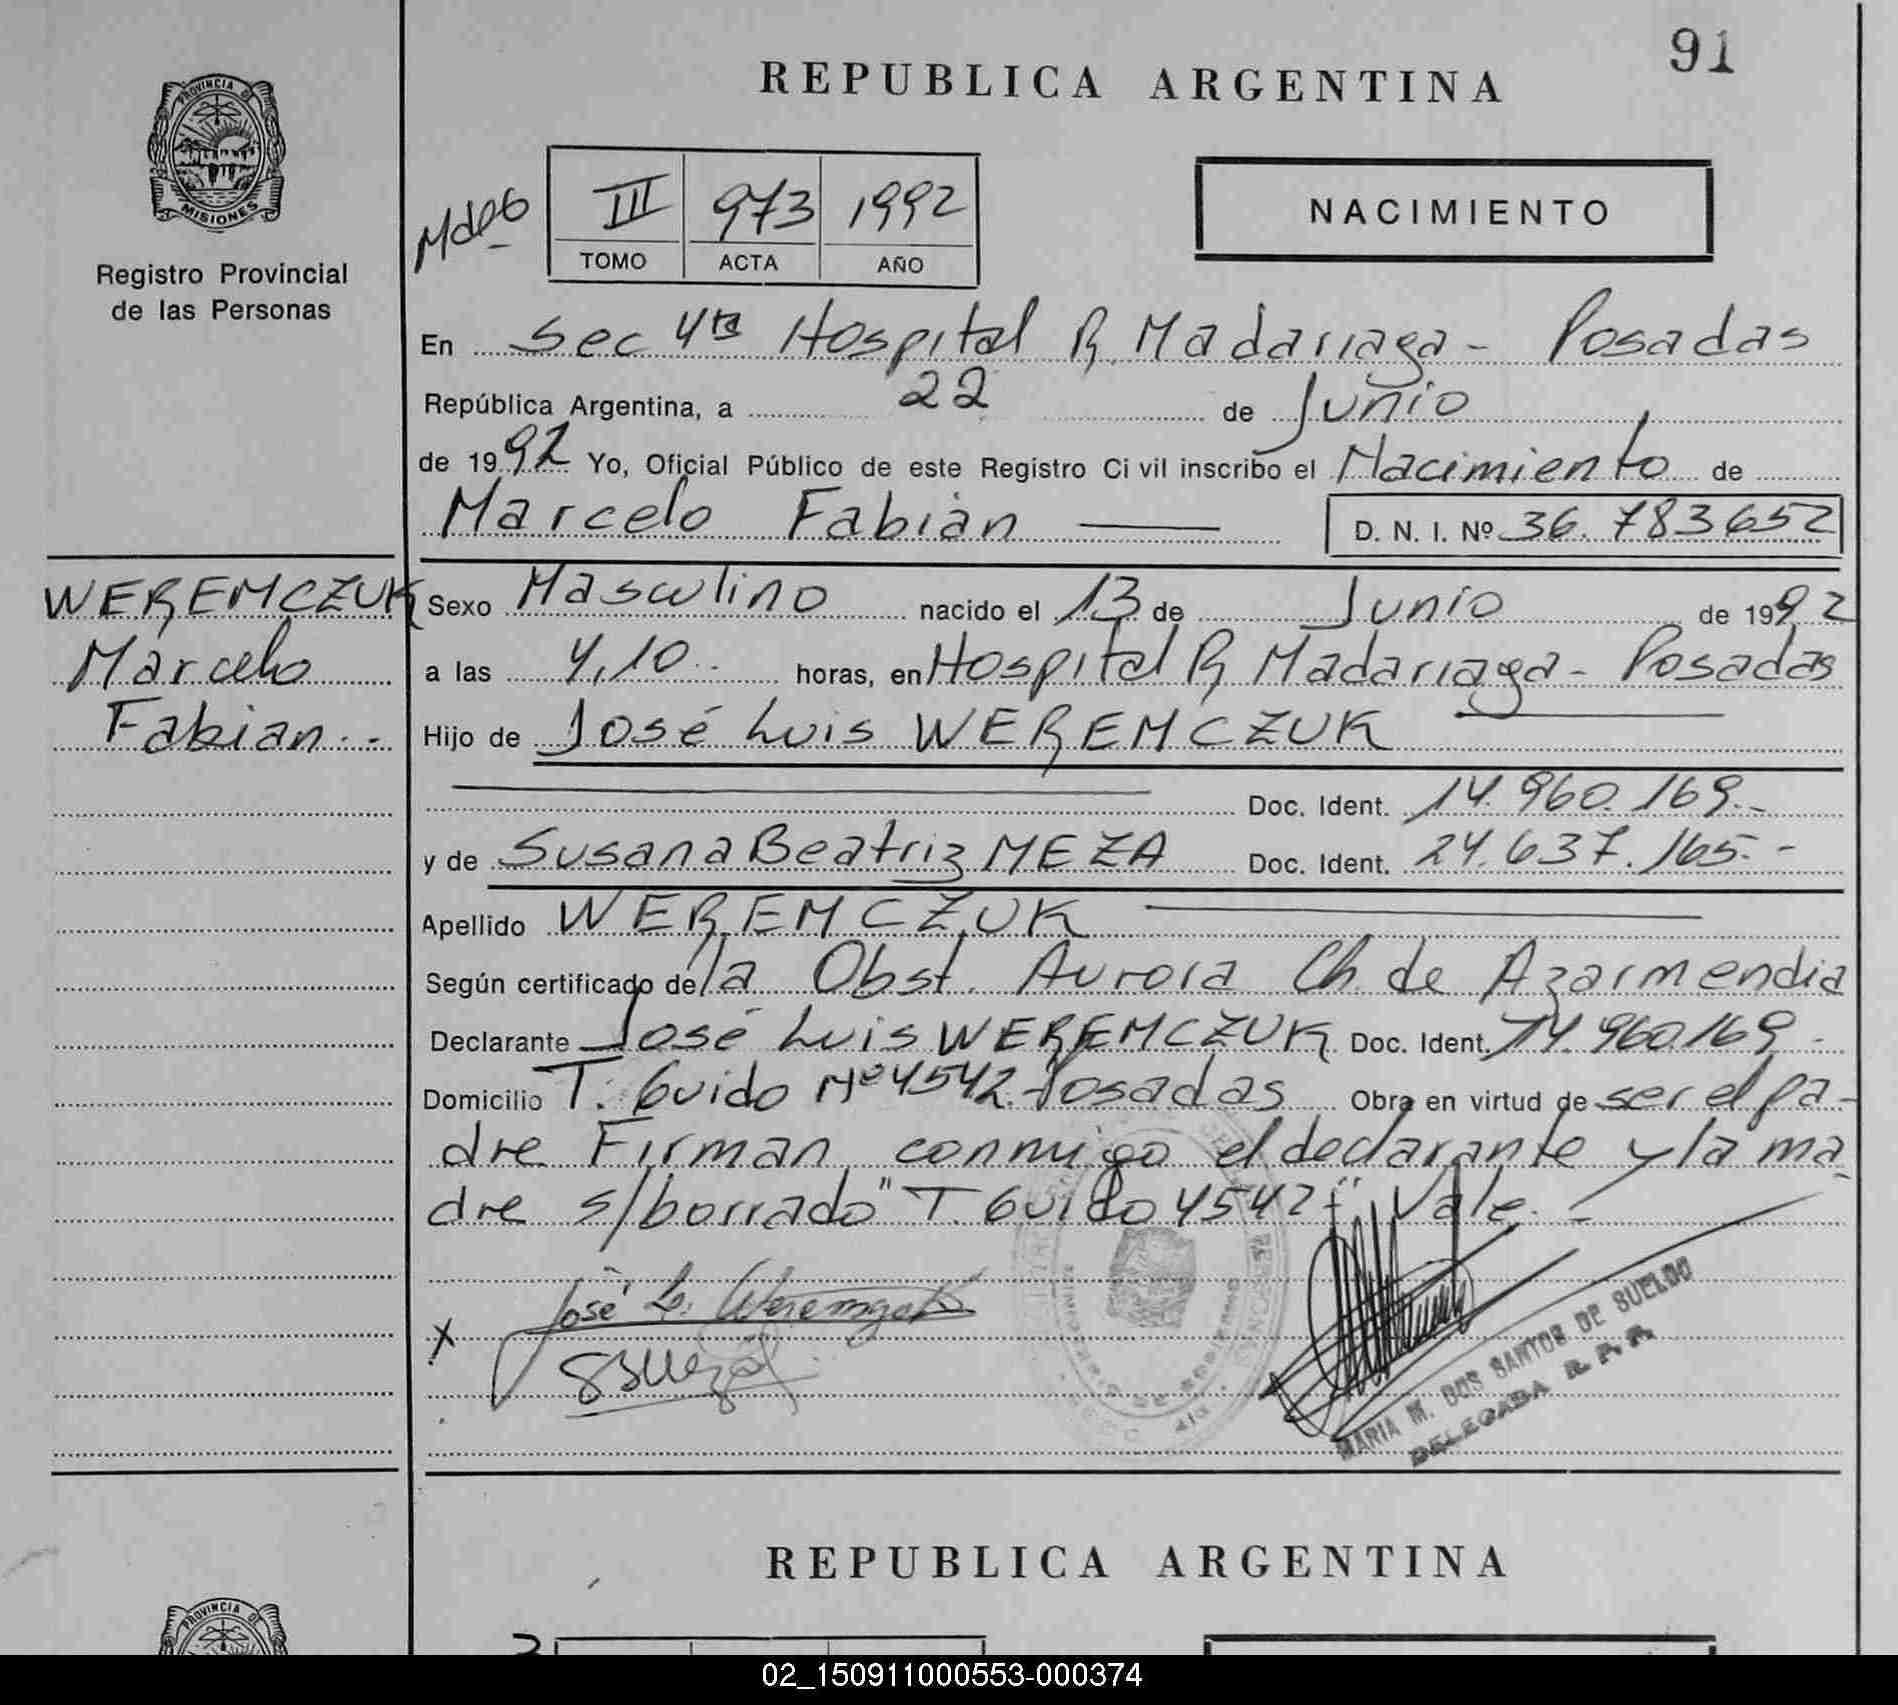 91
REPUBLICA ARGENTINA
PROVINCIA DE
MISIONES
Registro Provincial
de las Personas
III 973 1992
TOMO ACTA AÑO
NACIMIENTO
En Sec 4ta Hospital R. Madariaga - Posadas
República Argentina, a 22 de Junio
de 1992 Yo, Oficial Público de este Registro Civil inscribo el Nacimiento de
Marcelo Fabián D. N. I. Nº 36.783652
WEREMCZUK
Marcelo
Fabian.-
Sexo Masculino nacido el 13 de Junio de 1992
a las 4,10 horas, en Hospital R. Madariaga - Posadas
Hijo de José Luis WEREMCZUK
Doc. Ident. 14.960.169.-
y de Susana Beatriz MEZA Doc. Ident. 24.637.165.-
Apellido WEREMCZUK
Según certificado de la Obst. Aurora Ch. de Azarmendia
Declarante José Luis WEREMCZUK Doc. Ident. 14.960.169.-
Domicilio T. Guido Nº 4542. Posadas Obra en virtud de ser el pa-
dre Firman conmigo el declarante y la ma-
dre s/borrado "T. Guido 4542" Vale.-
José L. Weremczuk
X
SBMeza
MARIA M. DOS SANTOS DE SUELDO
DELEGADA R. P. P.
REPUBLICA ARGENTINA
PROVINCIA DE
02_150911000553-000374